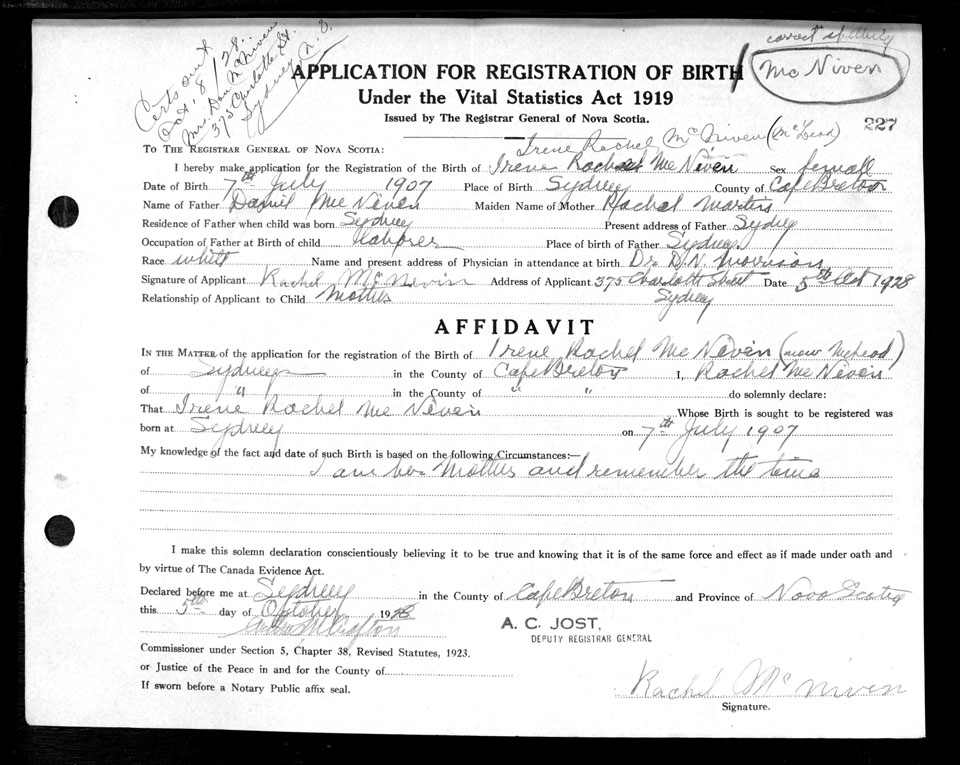 Certs out
Oct. 8/28.
Mrs. Dan McNiven
375 Charlotte St.
Sydney N.S.
correct spelling
Mc Niven
APPLICATION FOR REGISTRATION OF BIRTH
Under the Vital Statistics Act 1919
Issued by The Registrar General of Nova Scotia.
227
Irene Rachel McNiven (McLeod)
To the Registrar General of Nova Scotia:
I hereby make application for the Registration of the Birth of Irene Rachel Mc Niven Sex female
Date of Birth 7th July 1907 Place of Birth Sydney County of Cape Breton
Name of Father Daniel Mc Niven Maiden Name of Mother Rachel Martin
Residence of Father when child was born Sydney Present address of Father Sydney
Occupation of Father at Birth of child Laborer Place of birth of Father Sydney
Race white Name and present address of Physician in attendance at birth Dr. D.N. Morrison
Signature of Applicant Rachel McNevin Address of Applicant 375 Charlotte Street Date 5th Oct 1928
Relationship of Applicant to Child Mother Sydney
AFFIDAVIT
In the Matter of the application for the registration of the Birth of Irene Rachel Mc Niven (now McLeod)
of Sydney in the County of Cape Breton I, Rachel Mc Niven
of " in the County of " " do solemnly declare:
That Irene Rachel Mc Niven Whose Birth is sought to be registered was
born at Sydney on 7th July 1907
My knowledge of the fact and date of such Birth is based on the following Circumstances:—
I am her Mother and remember the time
I make this solemn declaration conscientiously believing it to be true and knowing that it is of the same force and effect as if made under oath and
by virtue of The Canada Evidence Act.
Declared before me at Sydney in the County of Cape Breton and Province of Nova Scotia
this 5th day of October 1928
A. C. JOST,
DEPUTY REGISTRAR GENERAL
Commissioner under Section 5, Chapter 38, Revised Statutes, 1923.
or Justice of the Peace in and for the County of
If sworn before a Notary Public affix seal.
Rachel Mc niven
Signature.